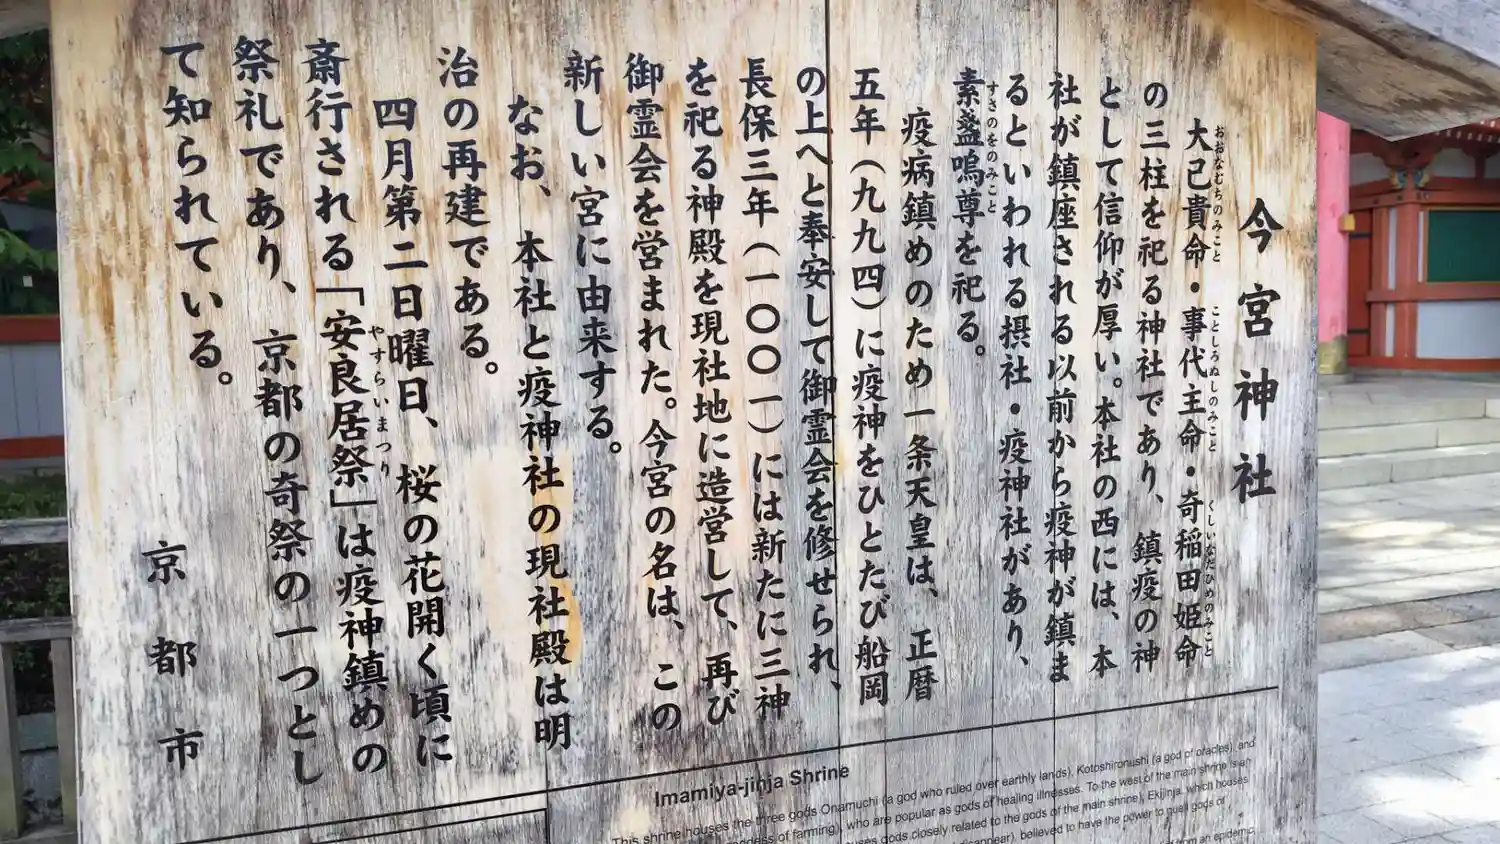 今宮神社
大己貴命・事代主命・奇稲田姫命
おおなむちのみこと ことしろぬしのみこと くしいなだひめのみこと
の三柱を祀る神社であり、鎮疫の神
として信仰が厚い。本社の西には、本
社が鎮座される以前から疫神が鎮ま
るといわれる摂社・疫神社があり、
素盞嗚尊を祀る。
すさのをのみこと
疫病鎮めのため一条天皇は、正暦
五年(九九四)に疫神をひとたび船岡
の上へと奉安して御霊会を修せられ、
長保三年(一〇〇一)には新たに三神
を祀る神殿を現社地に造営して、再び
御霊会を営まれた。今宮の名は、この
新しい宮に由来する。
なお、本社と疫神社の現社殿は明
治の再建である。
四月第二日曜日、桜の花開く頃に
斎行される「安良居祭」は疫神鎮めの
やすらいまつり
祭礼であり、京都の奇祭の一つとし
て知られている。
京都市
Imamiya-jinja Shrine
This shrine houses the three gods Onamuchi (a god who ruled over earthly lands), Kotoshironushi (a god of oracles), and
goddess of farming), who are popular as gods of healing illnesses. To the west of the main shrine is an
uses gods closely related to the gods of the main shrine), Ekijinja, which houses
disappear), believed to have the power to quell gods of
from an epidemic,